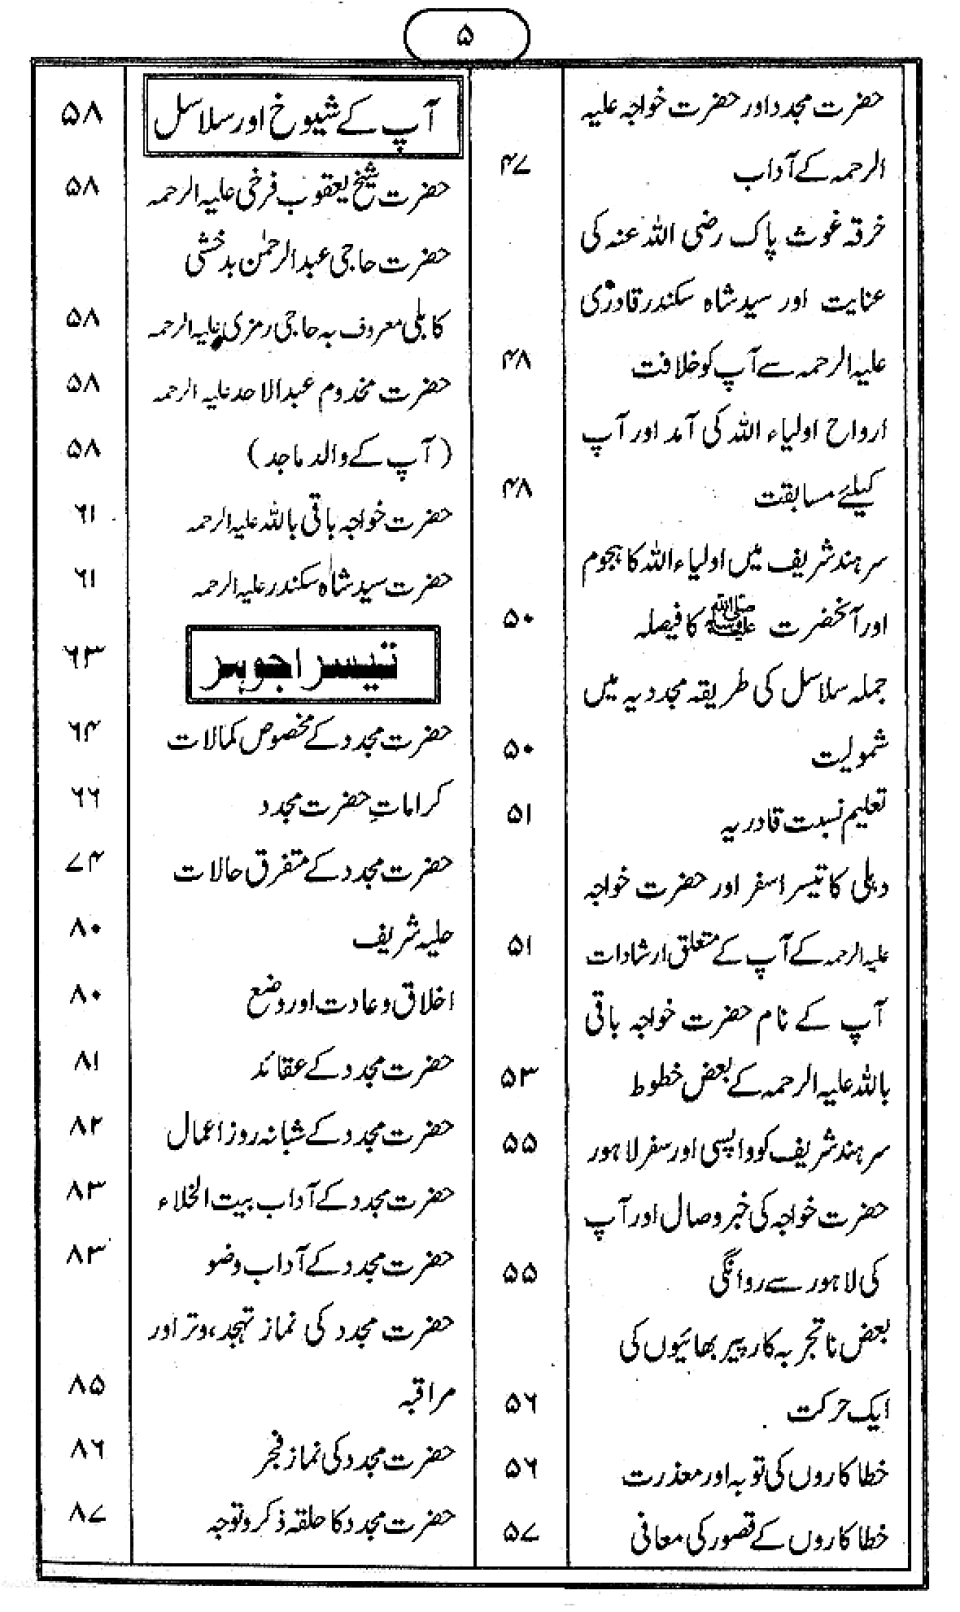 ۵
حضرت مجدد اور حضرت خواجہ علیہ
الرحمہ کے آداب ۴۷
خرقہ غوث پاک رضی اللہ عنہ کی
عنایت اور سید شاہ سکندر قادری
علیہ الرحمہ سے آپ کو خلافت ۴۸
ارواح اولیاء اللہ کی آمد اور آپ
کیلئے مسابقت ۴۸
سرہند شریف میں اولیاء اللہ کا ہجوم
اور آنحضرت ﷺ کا فیصلہ ۵۰
جملہ سلاسل کی طریقہ مجددیہ میں
شمولیت ۵۰
تعلیم نسبت قادریہ ۵۱
دہلی کا تیسرا سفر اور حضرت خواجہ
علیہ الرحمہ کے آپ کے متعلق ارشادات ۵۱
آپ کے نام حضرت خواجہ باقی
باللہ علیہ الرحمہ کے بعض خطوط ۵۳
سرہند شریف کو واپسی اور سفر لاہور ۵۵
حضرت خواجہ کی خبر وصال اور آپ
کی لاہور سے روانگی ۵۵
بعض ناتجربہ کار پیر بھائیوں کی
ایک حرکت ۵۶
خطا کاروں کی توبہ اور معذرت ۵۶
خطا کاروں کے قصور کی معافی ۵۷
آپ کے شیوخ اور سلاسل ۵۸
حضرت شیخ یعقوب فرخی علیہ الرحمہ ۵۸
حضرت حاجی عبدالرحمٰن بدخشی
کابلی معروف بہ حاجی رمزی علیہ الرحمہ ۵۸
حضرت مخدوم عبدالاحد علیہ الرحمہ ۵۸
(آپ کے والد ماجد) ۵۸
حضرت خواجہ باقی باللہ علیہ الرحمہ ۶۱
حضرت سید شاہ سکندر علیہ الرحمہ ۶۱
تیسرا جوہر ۶۳
حضرت مجدد کے مخصوص کمالات ۶۴
کراماتِ حضرت مجدد ۶۶
حضرت مجدد کے متفرق حالات ۷۴
حلیہ شریف ۸۰
اخلاق و عادت اور وضع ۸۰
حضرت مجدد کے عقائد ۸۱
حضرت مجدد کے شبانہ روز اعمال ۸۲
حضرت مجدد کے آداب بیت الخلاء ۸۳
حضرت مجدد کے آداب وضو ۸۳
حضرت مجدد کی نماز تہجد، وتر اور
مراقبہ ۸۵
حضرت مجدد کی نماز فجر ۸۶
حضرت مجدد کا حلقہ ذکر و توجہ ۸۷